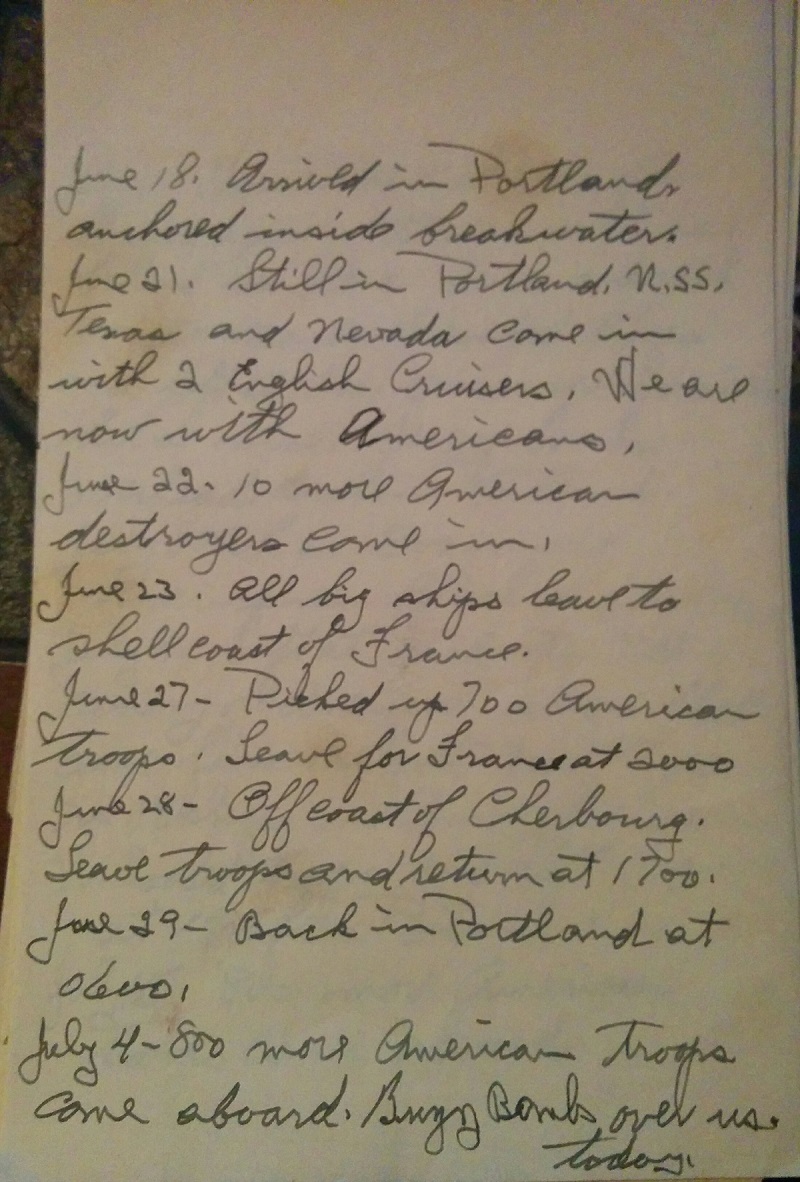 June 18. Arrived in Portland,
anchored inside breakwater.
June 21. Still in Portland. U.S.S.
Texas and Nevada come in
with 2 English Cruisers. We are
now with Americans.
June 22- 10 more American
destroyers come in.
June 23. All big ships leave to
shell coast of France.
June 27- Picked up 700 American
troops. Leave for France at 2000
June 28- Off coast of Cherbourg.
Leave troops and return at 1700.
June 29- Back in Portland at
0600.
July 4- 800 more American troops
come aboard. Buzz Bombs over us
today.